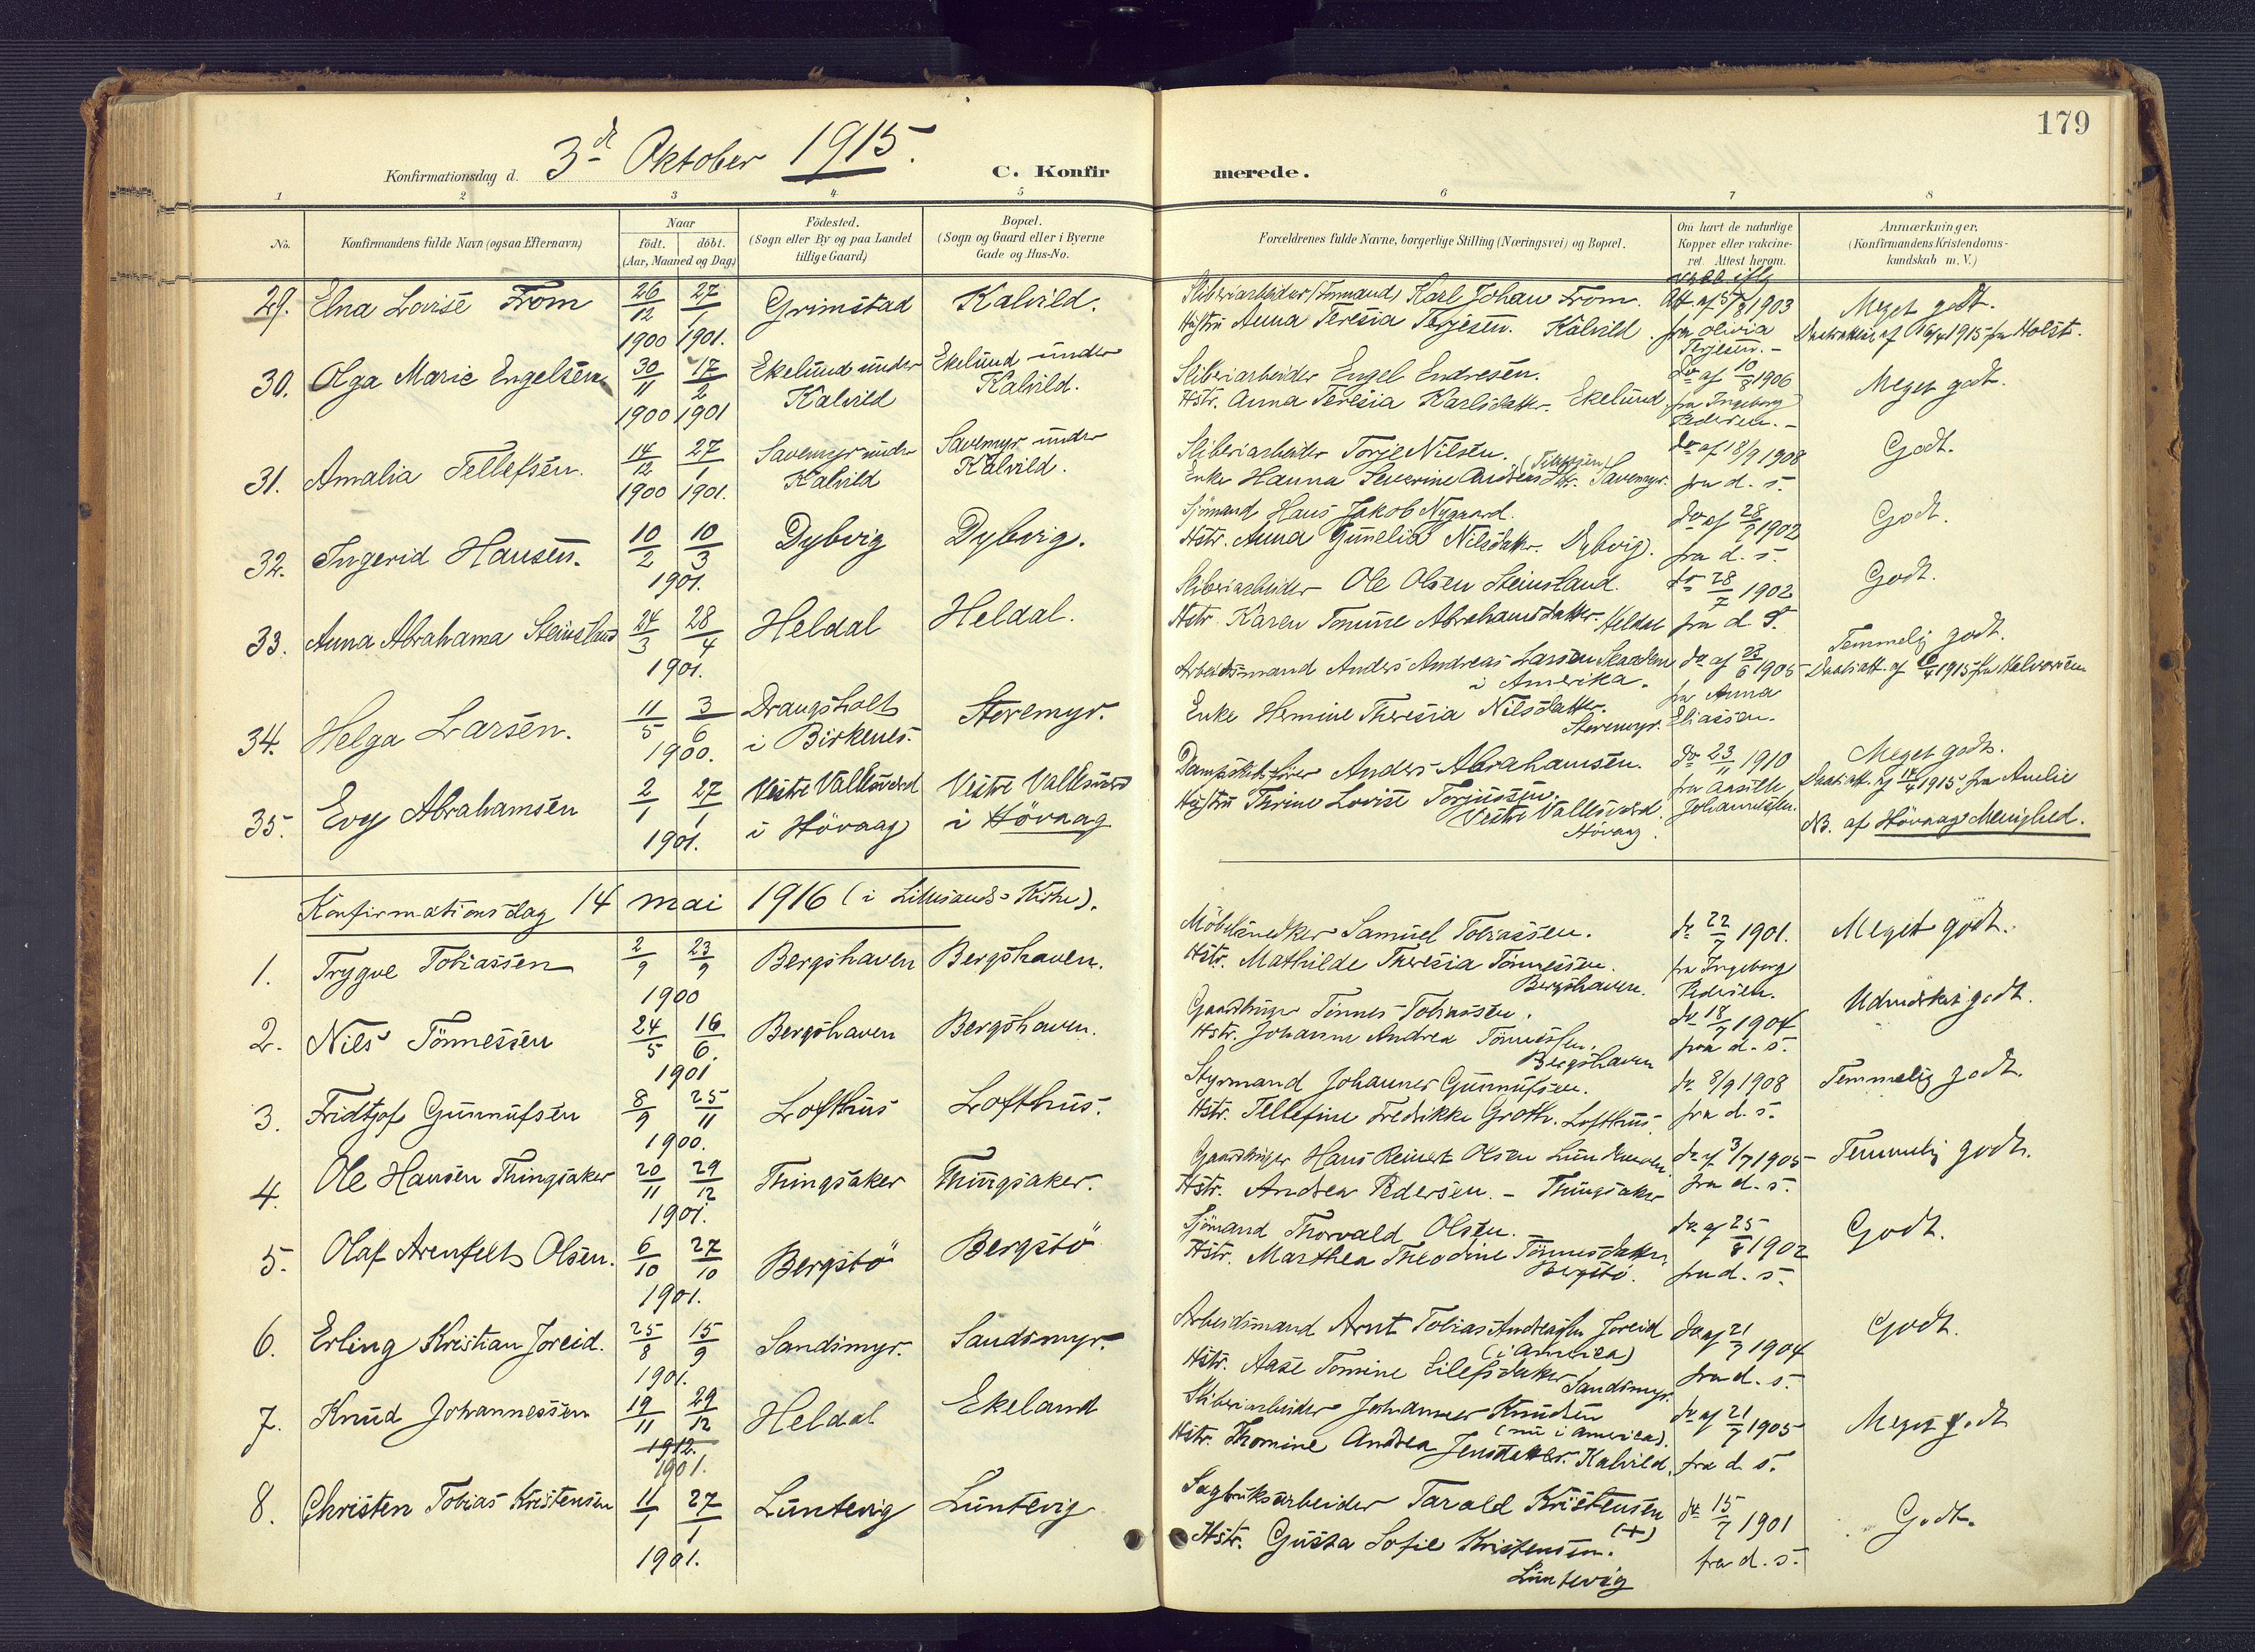 179
Konfirmationsdag d. 3d Oktober 1915.
C. Konfirmerede.
1 2 3 4 5 6 7 8
No.
Konfirmandens fulde Navn (ogsaa Efternavn)
Naar
födt. döbt.
(Aar, Maaned og Dag)
Födested.
(Sogn eller By og paa Landet
tillige Gaard)
Bopæl.
(Sogn og Gaard eller i Byerne
Gade og Hus-No.
Forældrenes fulde Navne, borgerlige Stilling (Næringsvei) og Bopæl.
Om havt de naturlige
Kopper eller vakcine-
ret. Attest herom.
Anmærkninger.
(Konfirmandens Kristendoms-
kundskab m. V.)
29. Elna Lovise From 26/12 1900 27/1 1901. Grimstad Kalvild.
Sliberiarbeider (Formand) Karl Johan From.
Hustru Anna Teresia Terjesen. Kalvild.
Att. af 5/8 1903
fra Olivia
Terjesen.-
Meget godt.
1915 fra Holst.
30. Olga Marie Engelsen 30/11 1900 17/2 1901 Ekelund under Kalvild Ekelund under Kalvild.
Sliberiarbeider Engel Endresen.
Hstr. Anna Teresia Karlsdatter. Ekelund.
do af 10/8 1906
fra Ingeborg
Pedersen.-
Meget godt.
31. Amalia Tellefsen. 14/12 1900 27/1 1901. Savemyr under Kalvild Savemyr under Kalvild.
Sliberiarbeider Torje Nilsen.
Enke Hanna Severine Savemyr.
do af 18/9 1908
fra d. s.
Godt.
32. Ingerid Hansen. 10/2 10/3 1901. Dybvig Dybvig.
Sjömand Hans Jakob Nygaard.
Hstr. Anna Gunelia Nilsdatter. Dybvig.
do af 28/7 1902
fra d. s.
Godt.
33. Anna Abrahama Steinsland 24/3 28/4 1901. Heldal Heldal.
Sliberiarbeider Ole Olsen Steinsland.
Hstr. Karen Tomine Abrahamsdatter. Heldal
do 28/7 1902
fra d. S.
Godt.
34. Helga Larsen. 11/5 3/6 1900. Drangsholt i Birkenes. Steremyr.
Arbeidsmand Anders Andreas Larsen
i Amerika.
Enke Hermine Theresia Nilsdatter.
Steremyr.
do af 23/6 1905
fra Anna
Eliassen.
Temmelig godt.
Daabsatt. af 10/4 1915 fra Halvorsen
35. Evy Abrahamsen 2/1 27/1 1901. Vestre Vallesverd i Hövaag Vestre Vallesverd i Hövaag
Dampskibsförer Anders Abrahamsen.
Hustru Thrine Lovise Torjussen.
Vestre Vallesverd.
Hövaag.
do 23/11 1910
fra
Johannessen.
Meget godt.
Daabsatt. af 14/4 1915 fra Amelie
NB. af Hövaag Menighed.
Konfirmationsdag 14 mai 1916 (i Lillesands Kirke).
1. Trygve Tobiassen 2/9 23/9 1900 Bergshaven Bergshaven.
Möbelsnedker Samuel Tobiassen.
Hstr. Mathilde Theresia Tönnessen.
Bergshaven.
do 22/7 1901.
fra Ingeborg
Pedersen.
Meget godt.
2. Nils Tönnessen 24/5 16/6. 1901 Bergshaven Bergshaven.
Gaardbruger Tönnes Tobiassen.
Hstr. Johanne Andrea Tönnessen.
Bergshaven
do 18/7 1904
fra d. s.
Udmerket godt.
3. Fridtjof Gunnufsen 8/9 25/11 1900. Lofthus Lofthus.
Styrmand Johannes Gunnufsen.
Hstr. Tellefine Fredrikke Groth. Lofthus.
do 8/9 1908
fra d. s.
Temmelig godt.
4. Ole Hansen Thingsaker 20/11 29/12 1901. Thingsaker Thingsaker.
Gaardbruger Hans Reinert Olsen
Hstr. Andrea Pedersen. - Thingsaker
do af 3/7 1905
fra d. s.
Temmelig godt.
5. Olaf Arenfelts Olsen. 6/10 27/10 1901. Bergstö Bergstö
Sjömand Thorvald Olsen.
Hstr. Marthea Theodine Tönnesdatter.
Bergstö.
do af 25/8 1902
fra d. s.
Godt.
6. Erling Kristian Joreid. 25/8 15/9 1901. Sandsmyr. Sandsmyr.
Arbeidsmand Arnt Tobias Andreassen Joreid
(i America)
Hstr. Aase Tomine Eilefsdatter Sandsmyr.
do af 21/7 1904
fra d. s.
Godt.
7. Knud Johannessen 19/11 29/12 1912. 1901. Heldal Ekeland
Sliberiarbeider Johannes Knudsen
(nu i America).
Hstr. Thomine Andrea Jensdatter. Kalvild.
do af 21/7 1905
fra d. s.
Meget godt
8. Christen Tobias Kristensen 11/1 27/1 1901. Luntevig Luntevig
Sagbruksarbeider Tarald Kristensen
(+)
Hstr. Gusta Sofie Kristensen.
Luntevig
do 15/7 1901
fra d. s.
Godt.